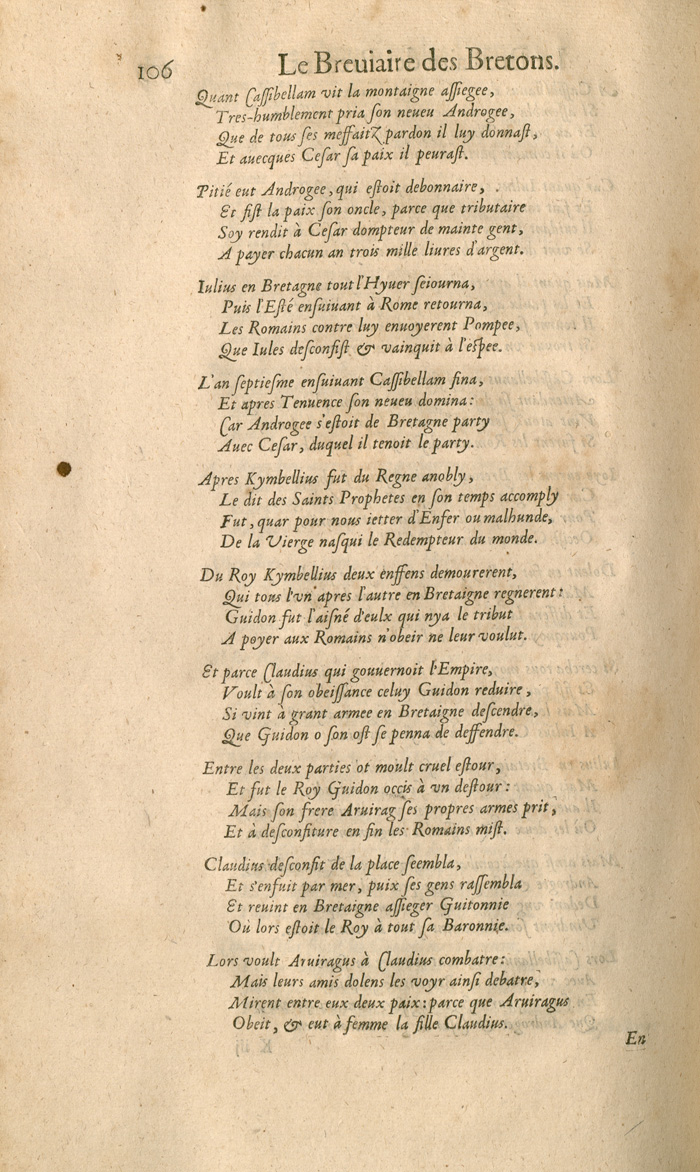 106 Le Breuiaire des Bretons.
Quant Caſſibellam vit la montaigne aſſiegee,
Tres-humblement pria ſon neueu Androgee,
Que de tous ſes meffaitz pardon il luy donnaſt,
Et auecques Ceſar ſa paix il peuraſt.
Pitié eut Androgee, qui eſtoit debonnaire,
Et fiſt la paix ſon oncle, parce que tributaire
Soy rendit à Ceſar dompteur de mainte gent,
A payer chacun an trois mille liures d'argent.
Iulius en Bretagne tout l'Hyuer ſeiourna,
Puis l'Eſté enſuiuant à Rome retourna,
Les Romains contre luy enuoyerent Pompee,
Que Iules deſconfiſt & vainquit à l'eſpee.
L'an ſeptieſme enſuiuant Caſſibellam fina,
Et apres Tenuence ſon neueu domina:
Car Androgee s'eſtoit de Bretagne party
Auec Ceſar, duquel il tenoit le party.
Apres Kymbellius fut du Regne anobly,
Le dit des Saints Prophetes en ſon temps accomply
Fut, quar pour nous ietter d'Enfer ou malhunde,
De la Vierge naſqui le Redempteur du monde.
Du Roy Kymbellius deux enffens demourerent,
Qui tous l'vn apres l'autre en Bretaigne regnerent:
Guidon fut l'aiſné d'eulx qui nya le tribut
A poyer aux Romains n'obeir ne leur voulut.
Et parce Claudius qui gouuernoit l'Empire,
Voult à ſon obeiſſance celuy Guidon reduire,
Si vint à grant armee en Bretaigne deſcendre,
Que Guidon o ſon oſt ſe penna de deffendre.
Entre les deux parties ot moult cruel eſtour,
Et fut le Roy Guidon occis à vn deſtour:
Mais ſon frere Aruirag ſes propres armes prit,
Et à deſconfiture en fin les Romains miſt.
Claudius deſconfit de la place ſeembla,
Et s'enfuit par mer, puix ſes gens raſſembla
Et reuint en Bretaigne aſſieger Guitonnie
Où lors eſtoit le Roy à tout ſa Baronnie.
Lors voult Aruiragus à Claudius combatre:
Mais leurs amis dolens les voyr ainſi debatre,
Mirent entre eux deux paix: parce que Aruiragus
Obeit, & eut à femme la fille Claudius.
En